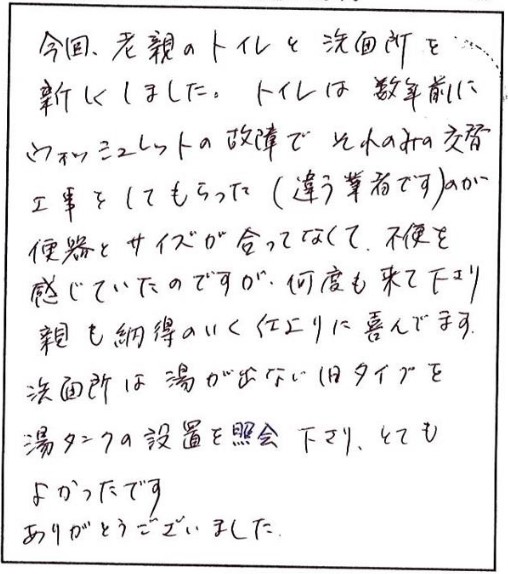 今回、老親のトイレと洗面所を
新しくしました。トイレは数年前に
ウォッシュレットの故障でそれのみの交替
工事をしてもらった(違う業者です)のが
便器とサイズが合ってなくて、不便を
感じていたのですが、何度も来て下さり
親も納得のいく仕上りに喜んでます。
洗面所は湯が出ない旧タイプを
湯タンクの設置を照会下さり、とても
よかったです
ありがとうございました。